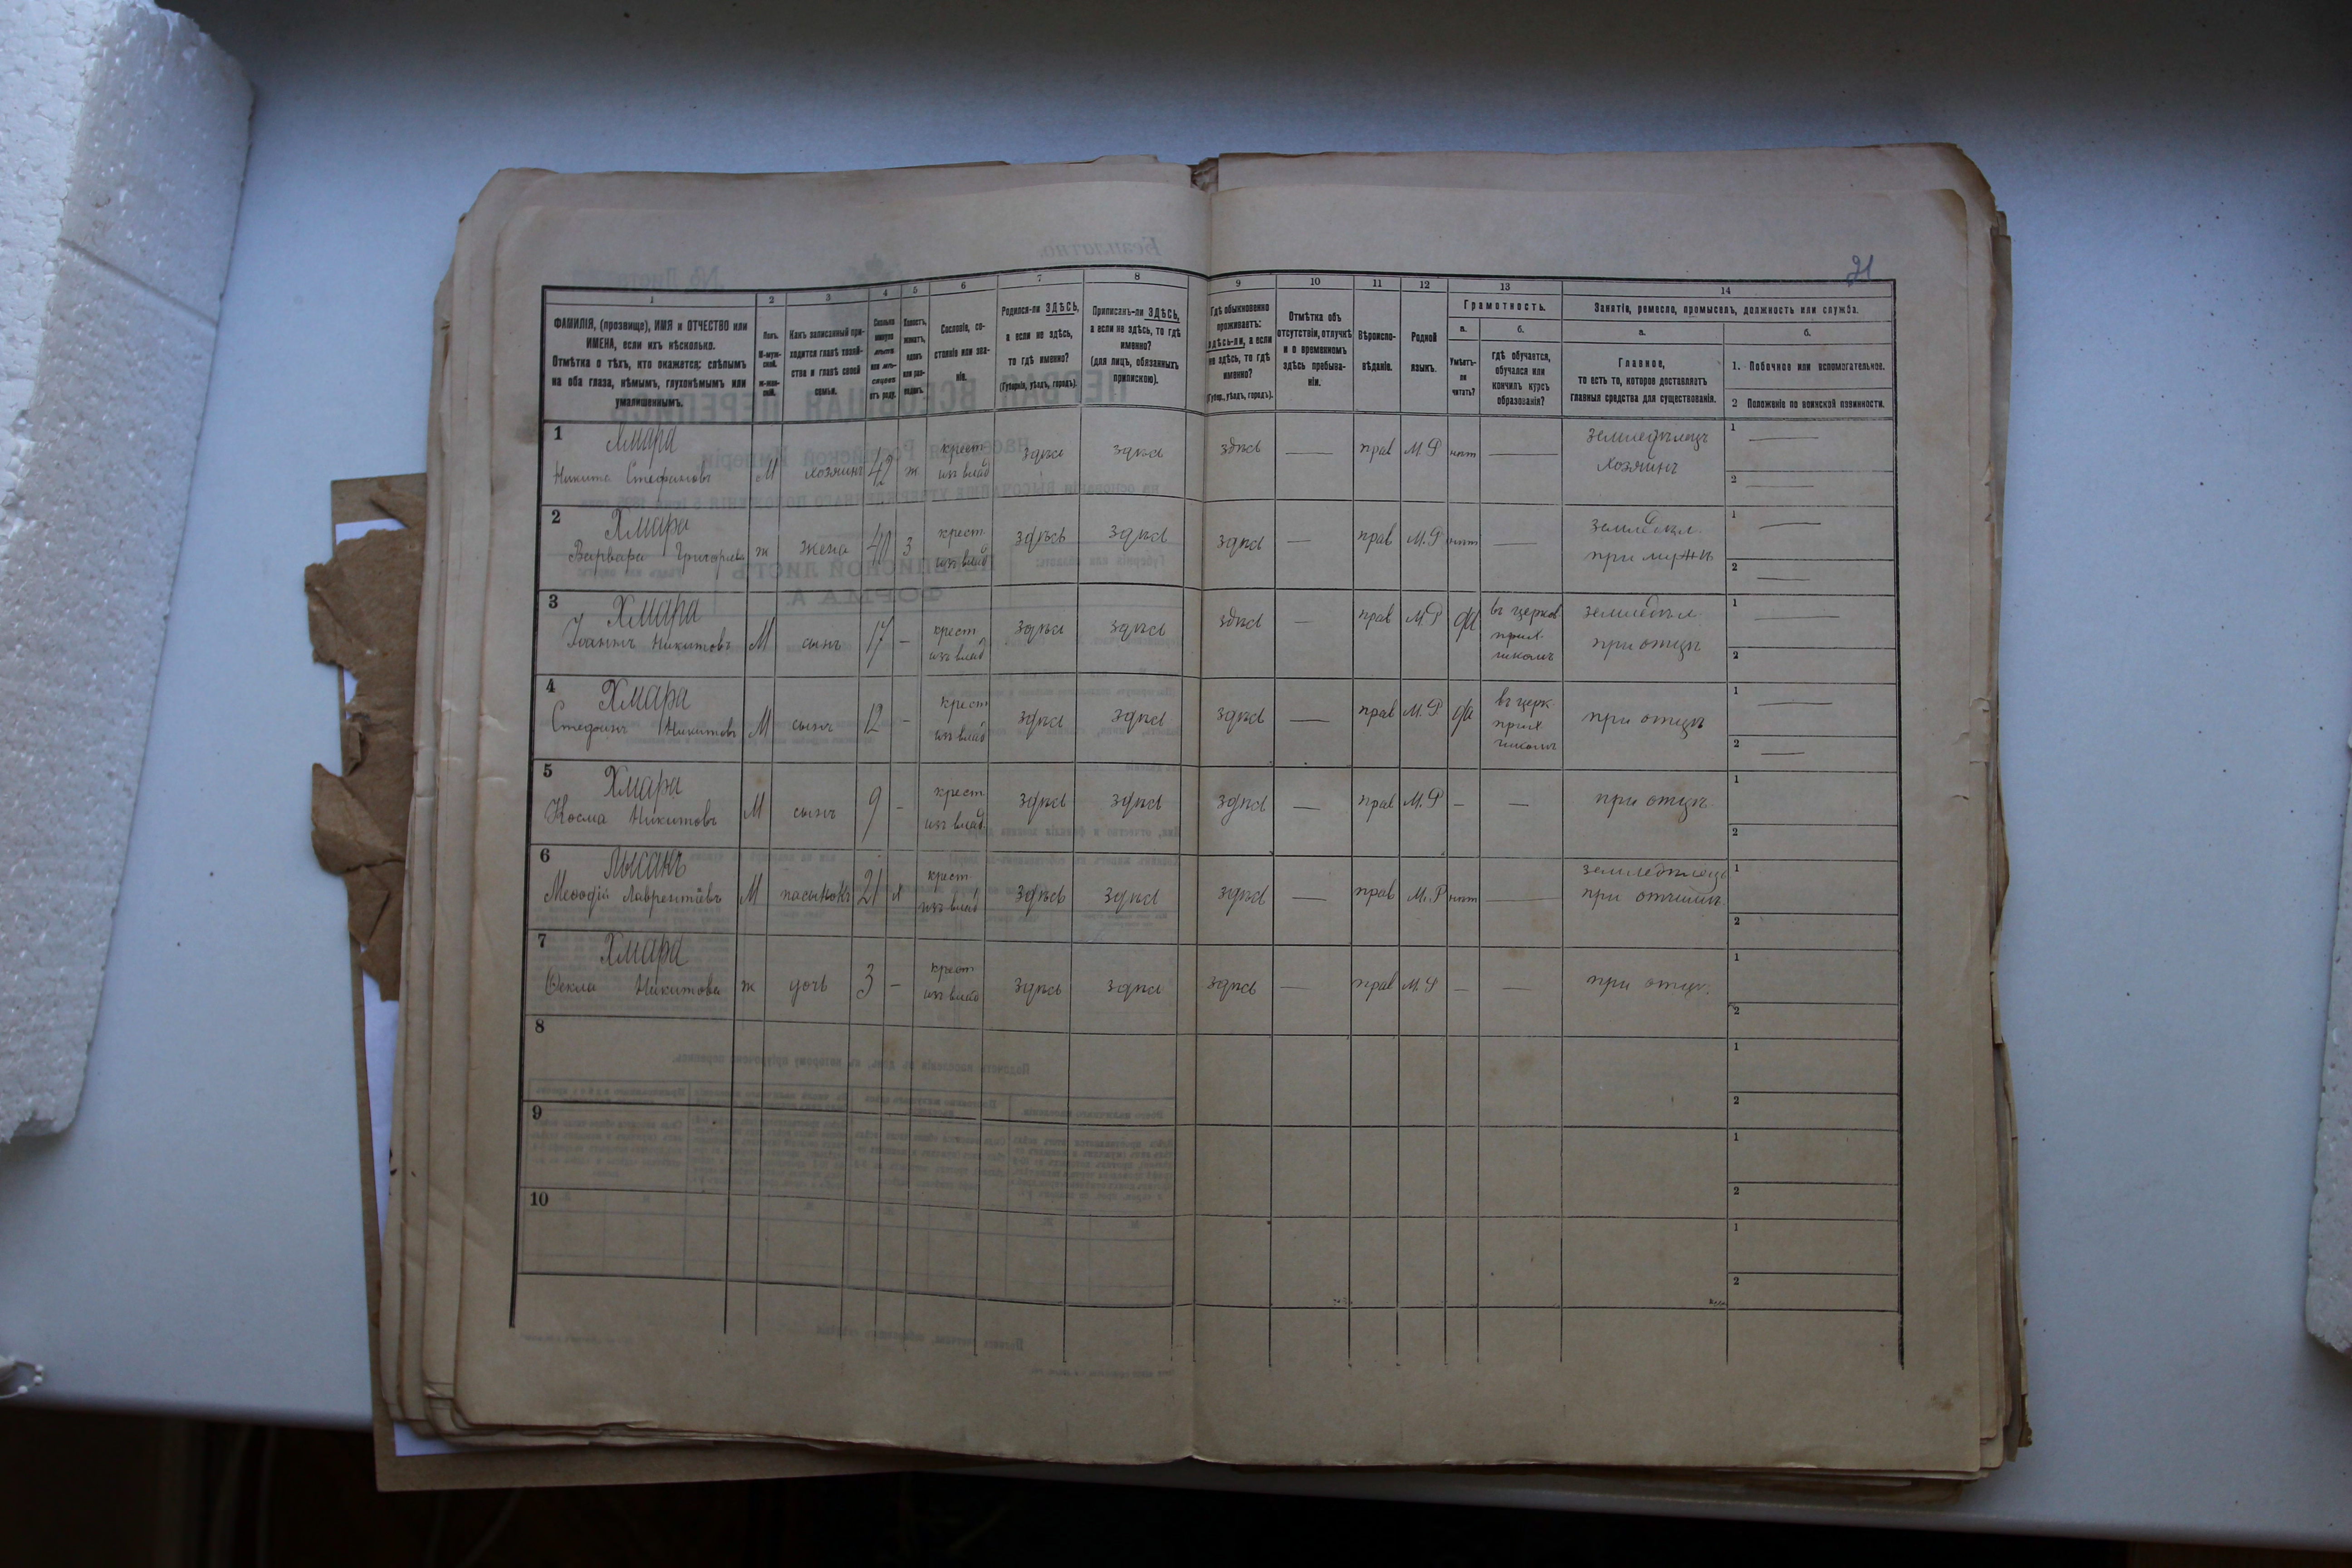 21
1 2 3 4 5 6 7 8 9 10 11 12 13 14
ФАМИЛІЯ, (прозвище), ИМЯ и ОТЧЕСТВО или
ИМЕНА, если ихъ нѣсколько.
Отмѣтка о тѣхъ, кто окажется: слѣпымъ
на оба глаза, нѣмымъ, глухонѣмымъ или
умалишеннымъ.
Полъ.
М-муж-
ской.
ж-жен-
скій.
Какъ записанный при-
ходится главѣ хозяй-
ства и главѣ своей
семьи.
Сколько
минуло
лѣтъ
или мѣ-
сяцевъ
отъ роду.
Холостъ,
женатъ,
вдовъ
или раз-
веденъ.
Сословіе, со-
стояніе или зва-
ніе.
Родился-ли ЗДѢСЬ,
а если не здѣсь,
то гдѣ именно?
(Губернія, уѣздъ, городъ).
Приписанъ-ли ЗДѢСЬ,
а если не здѣсь, то гдѣ
именно?
(для лицъ, обязанныхъ
припискою).
Гдѣ обыкновенно
проживаетъ:
здѣсь-ли, а если
не здѣсь, то гдѣ
именно?
(Губер., уѣздъ, городъ).
Отмѣтка объ
отсутствіи, отлучкѣ
и о временномъ
здѣсь пребыва-
ніи.
Вѣроиспо-
вѣданіе.
Родной
языкъ.
Грамотность.
а.
Умѣетъ-
ли
читать?
б.
гдѣ обучается,
обучался или
кончилъ курсъ
образованія?
Занятіе, ремесло, промыселъ, должность или служба.
а.
Главное,
то есть то, которое доставляетъ
главныя средства для существованія.
б.
1. Побочное или вспомогательное.
2 Положеніе по воинской повинности.
1 Хмара
Никита Стефановъ М хозяинъ 42 ж крест. изъ влад здѣсь здѣсь здѣсь — прав М.Р нѣт — земледѣлецъ хозяинъ 1 — 2 —
2 Хмара
Варвара Григорьева ж жена 40 з крест. изъ влад здѣсь здѣсь здѣсь — прав М.Р нѣт — земледѣл. при мужѣ 1 — 2 —
3 Хмара
Іоаннъ Никитовъ М сынъ 17 - крест изъ влад здѣсь здѣсь здѣсь — прав М.Р да въ церков прих. школѣ земледѣл. при отцѣ 1 — 2
4 Хмара
Стефанъ Никитовъ М сынъ 12 - крест изъ влад здѣсь здѣсь здѣсь — прав М.Р да въ церк прих школѣ при отцѣ 1 — 2 —
5 Хмара
Косма Никитовъ М сынъ 9 - крест изъ влад. здѣсь здѣсь здѣсь — прав М.Р - — при отцѣ 1 2
6 Лысакъ
Меѳодій Лаврентіевъ М пасынокъ 21 х крест. изъ влад здѣсь здѣсь здѣсь — прав М.Р нѣт — земледѣлецъ при отчимѣ. 1 2
7 Хмара
Ѳекла Никитова ж дочь 3 - крест изъ влад здѣсь здѣсь здѣсь — прав М.Р - — при отцѣ. 1 2
8 1 2
9 1 2
10 1 2